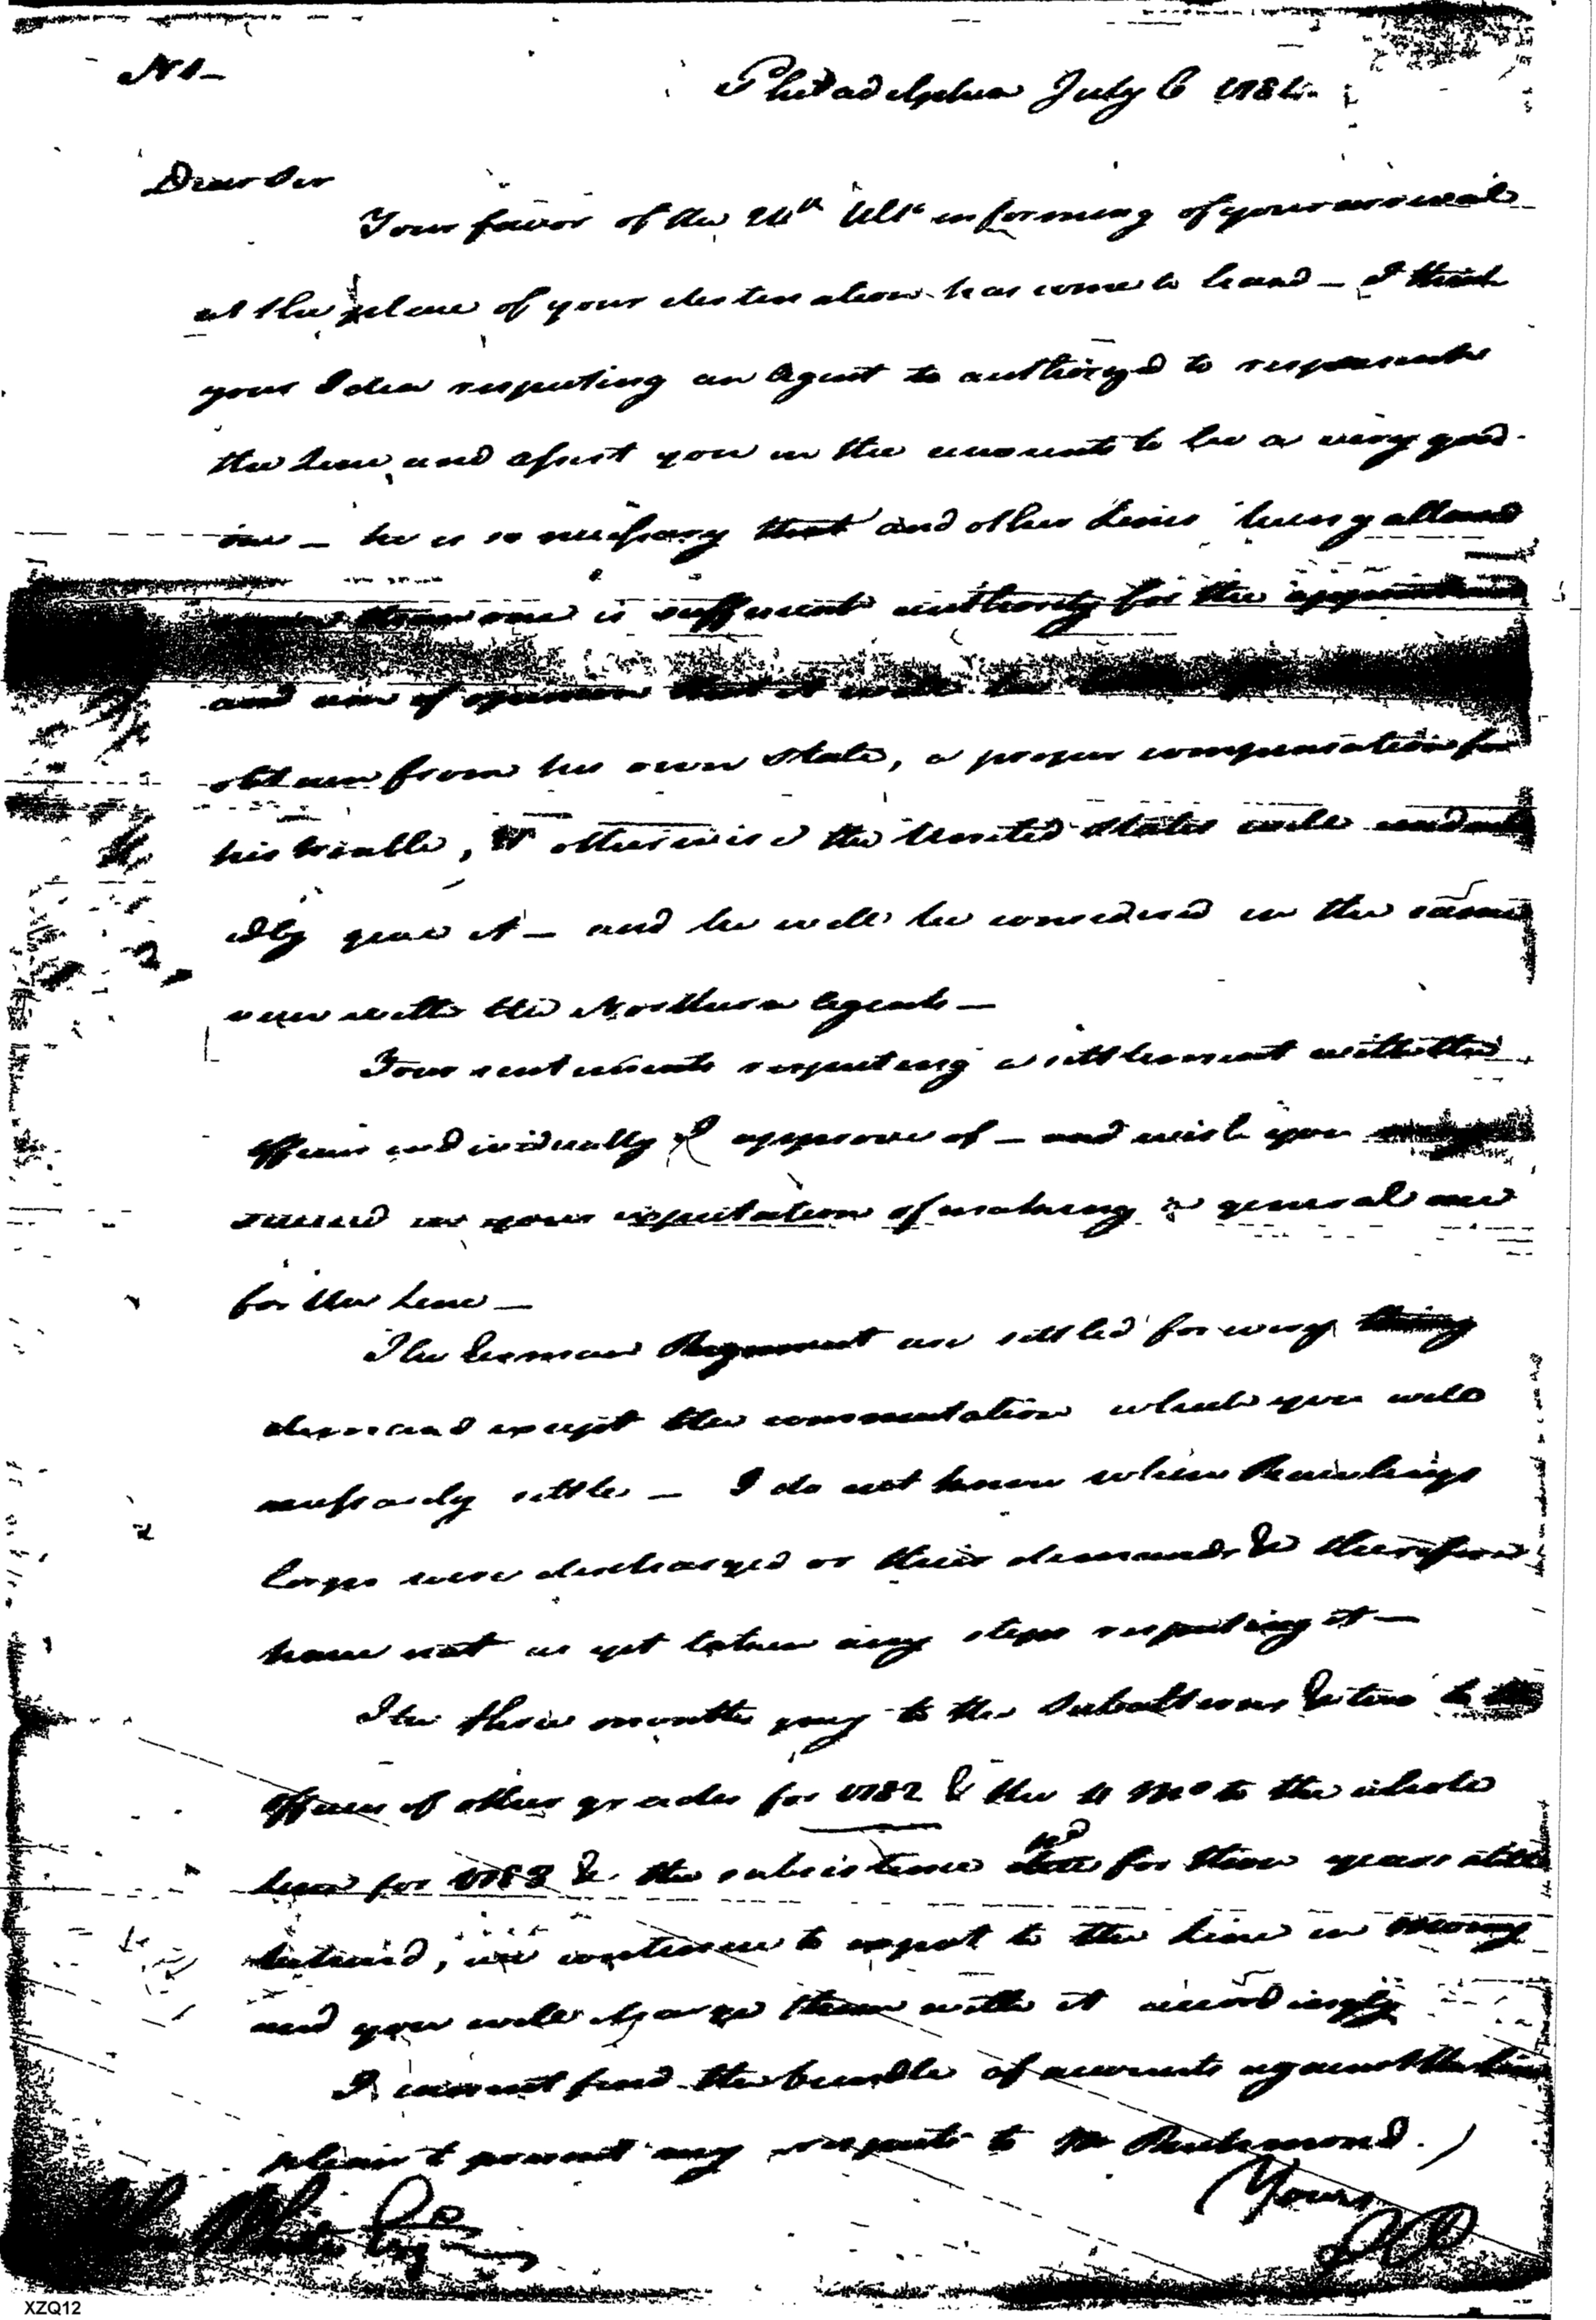 No 1 —
Philadelphia July 6 1784
Dear Sir
Your favor of the 24th Ulto informing of your arrival
at the place of your destination has come to hand — I think
your Idea respecting an Agent to authorized to represent
the Line and assist you in the accounts to be a very good
one — he is so necessary that and other Lines being allowed
one is sufficient authority for the appointment
and am of opinion that it will be
obtain from his own State, a proper compensation for
his trouble, otherwise the United States will undoubt
edly give it — and he will be considered in the same
view with the Northern Agents —
Your sentiments respecting a settlement with the
officers individually I approve of — and wish you may
succeed in your expectation of making a general one
for the Line —
The German Regiment are settled for every thing
demand except the commutation which you will
necessarily settle — I do not know when Rawlings
Corps were discharged or their demands & therefore
have not as yet taken any steps respecting it —
The three months pay to the Subalterns & two to the
officers of other grades for 1782 & the 4 Mo to the whole
Line for 1783 & the subsistence for those years still
, we continue to expect to the Line in money
and you will charge them with it accordingly
I cannot find the bundle of accounts against the Line
please to present my respects to Mr Richmond.
Yours
JP
John White Esqr
XZQ12